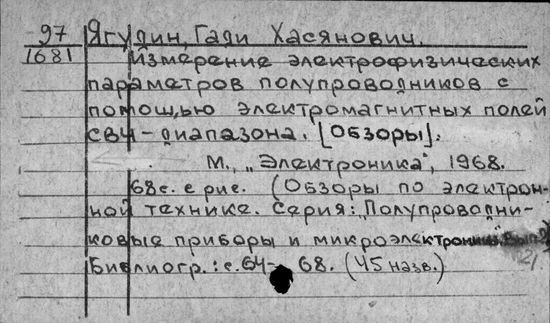 97 Ягудин, Гади Хасянович.
1681 Измерение электрофизических
параметров полупроводников с
помощью электромагнитных полей
СВЧ-диапазона. [Обзоры].
М., „Электроника", 1968.
68 с. с рис. (Обзоры по электрон-
ной технике. Серия: Полупроводни-
ковые приборы и микроэлектроника. Вып.
Библиогр.: с. 64- 68. (45 назв.)